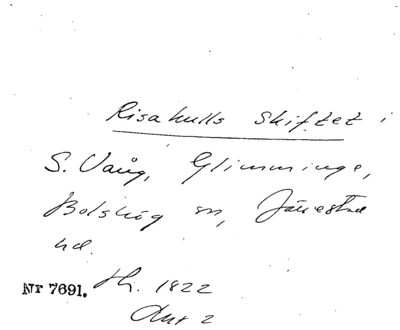 Risahulls Skiftet i
S. Vång, Glimminge,
Bolshög sn, Järrestad
hd.
Nr 7691. Th. 1822
Akt 2